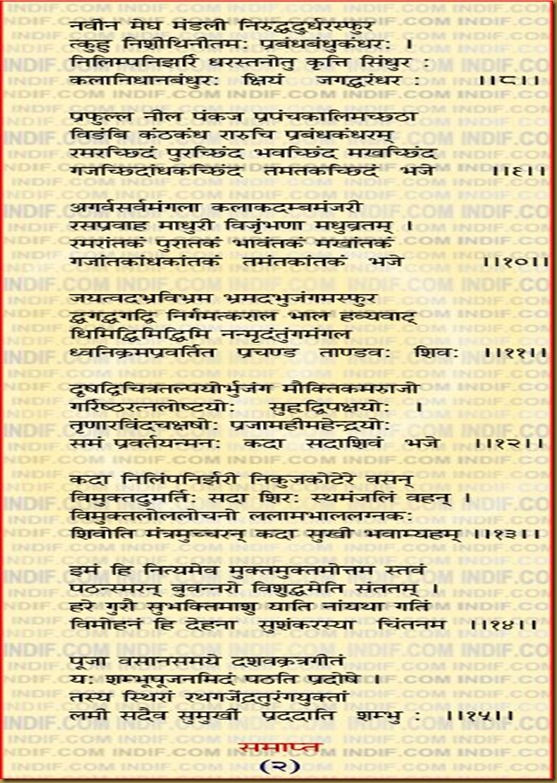 नवीन मेघ मंडली निरुद्धदुर्धरस्फुर
त्कुहु निशीथिनीतमः प्रबंधबंधुकंधरः ।
निलिम्पनिर्झरि धरस्तनोतु कृत्ति सिंधुर :
कलानिधानबंधुरः श्रियं जगद्धुरंधर : ।।८।।
प्रफुल्ल नील पंकज प्रपंचकालिमच्छठा
विडंबि कंठकंध रारुचि प्रबंधकंधरम्
स्मरच्छिदं पुरच्छिंद भवच्छिंद मखच्छिंद
गजच्छिदांधकच्छिदं तमतकच्छिदं भजे ।।९।।
अगर्वसर्वमंगला कलाकदम्बमंजरी
रसप्रवाह माधुरी विजृंभणा मधुव्रतम् ।
स्मरांतकं पुरातकं भावंतकं मखांतकं
गजांतकांधकांतकं तमंतकांतकं भजे ।।१०।।
जयत्वदभ्रविभ्रम भ्रमदभुजंगमस्फुर
द्धगद्धगद्वि निर्गमत्कराल भाल हव्यवाट्
धिमिद्धिमिद्धिमि नन्मृदंतुंगमंगल
ध्वनिक्रमप्रवर्तित प्रचण्ड ताण्डवः शिवः ।।११।।
दृषद्विचित्रतल्पयोर्भुजंग मौक्तिकमस्रजो
गर्रिष्ठरत्नलोष्टयोः सुहृद्विपक्षयोः ।
तृणारविंदचक्षषोः प्रजामहीमहेन्द्रयोः
समं प्रवर्तयन्मनः कदा सदाशिवं भजे ।।१२।।
कदा निलिंपनिर्झरी निकुजकोटेरे वसन्
विमुक्तदुमर्तिः सदा शिरः स्थमंजलिं वहन् ।
विमुक्तलोललोचनो ललामभाललग्नकः
शिवोति मंत्रमुच्चरन् कदा सुखी भवाम्यहम् ।।१३।।
इमं हि नित्यमेव मुक्तमुक्तमोत्तम स्तवं
पठन्स्मरन् बुवन्तरी विशुद्धमेति संततम् ।
हरे गुरौ सुभक्तिमाशु याति नांयथा गतिं
विमोहनं हि देहना सुशंकरस्या चिंतनम ।।१४।।
पूजा वसानसमये दशवक्रत्रगीतं
यः शम्भूपूजनमिदं पठति प्रदोषे ।
तस्य स्थिरां रथगजेंद्रतुरंगयुक्तां
लमी सदैव सुमुर्खी प्रददाति शम्भु : ।।१५।।
समाप्त
(२)